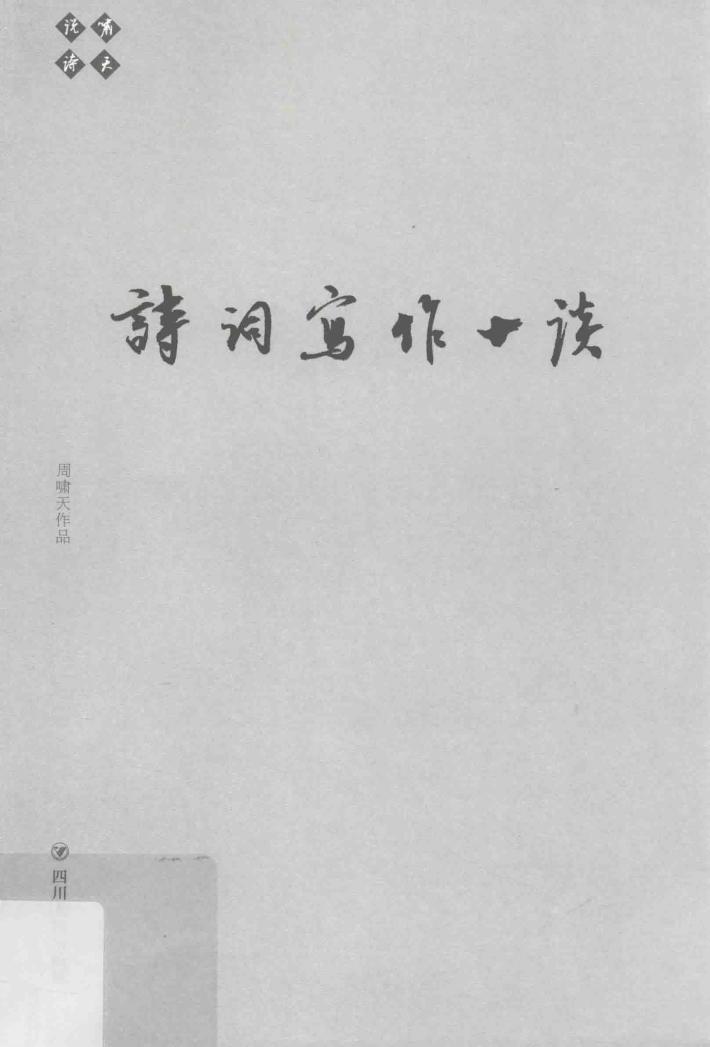 啸天
说诗
詩词写作十谈
周啸天作品
四川